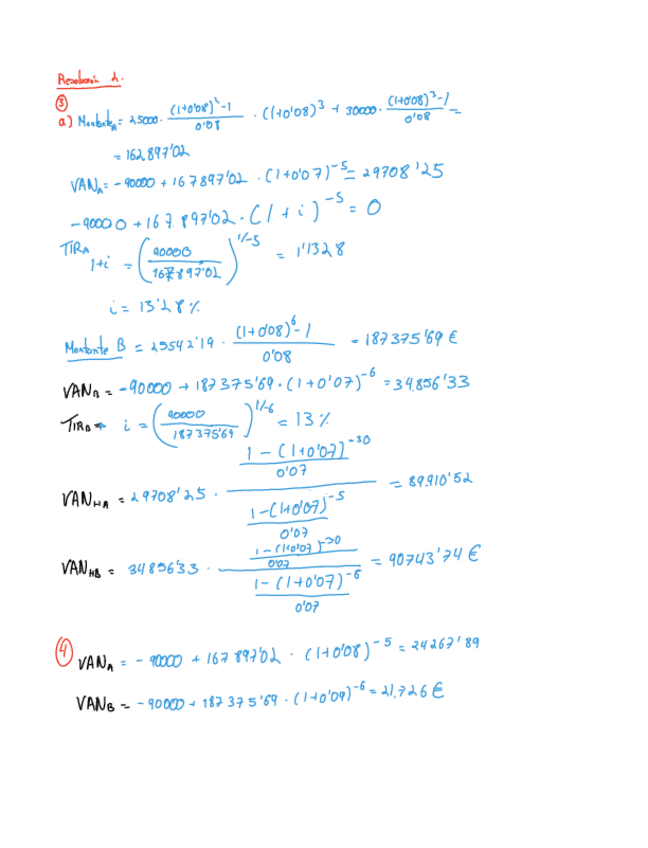 Resolución 2.
③
a) Montante_A = 25000 · ((1+0'08)^2 - 1)/0'08 · (1+0'08)^3 + 30000 · ((1+0'08)^3 - 1)/0'08 =
= 162897'02
VAN_A = -90000 + 167897'02 · (1+0'07)^-5 = 29708'25
-90000 + 167.897'02 · (1+i)^-5 = 0
TIR_A
1+i = (90000/167897'02)^1/-5 = 1'1328
i = 13'28%
Montante B = 25542'19 · ((1+0'08)^6 - 1)/0'08 = 187375'69 €
VAN_B = -90000 + 187375'69 · (1+0'07)^-6 = 34.856'33
TIR_B → i = (90000/187375'69)^1/-6 = 13%
VAN_HA = 29708'25 · ((1-(1+0'07)^-30)/0'07)/((1-(1+0'07)^-5)/0'07) = 89.910'52
VAN_HB = 34856'33 · ((1-(1+0'07)^-30)/0'07)/((1-(1+0'07)^-6)/0'07) = 90743'74 €
④ VAN_A = -90000 + 167897'02 · (1+0'08)^-5 = 24267'89
VAN_B = -90000 + 187375'69 · (1+0'09)^-6 = 21.726 €